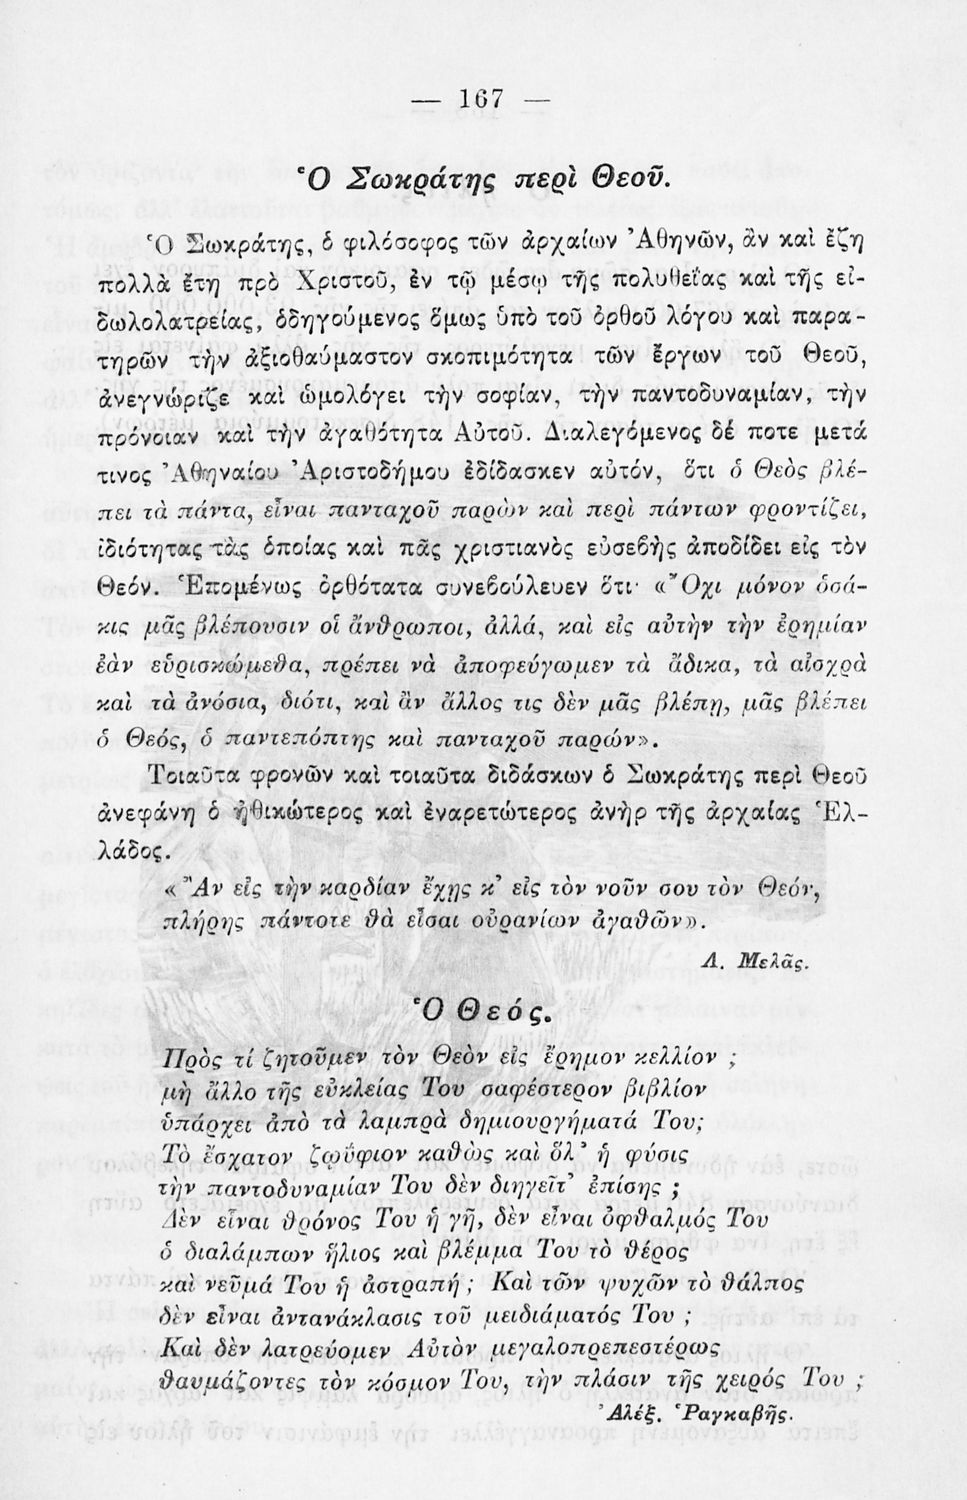 — 167 —
Ὁ Σωκράτης περὶ Θεοῦ.
Ὁ Σωκράτης, ὁ φιλόσοφος τῶν ἀρχαίων Ἀθηνῶν, ἂν καὶ ἔζη
πολλὰ ἔτη πρὸ Χριστοῦ, ἐν τῷ μέσῳ τῆς πολυθεΐας καὶ τῆς εἰ-
δωλολατρείας, ὁδηγούμενος ὅμως ὑπὸ τοῦ ὀρθοῦ λόγου καὶ παρα-
τηρῶν τὴν ἀξιοθαύμαστον σκοπιμότητα τῶν ἔργων τοῦ Θεοῦ,
ἀνεγνώριζε καὶ ὡμολόγει τὴν σοφίαν, τὴν παντοδυναμίαν, τὴν
πρόνοιαν καὶ τὴν ἀγαθότητα Αὐτοῦ. Διαλεγόμενος δέ ποτε μετά
τινος Ἀθηναίου Ἀριστοδήμου ἐδίδασκεν αὐτόν, ὅτι ὁ Θεὸς βλέ-
πει τὰ πάντα, εἶναι πανταχοῦ παρὼν καὶ περὶ πάντων φροντίζει,
ἰδιότητας τὰς ὁποίας καὶ πᾶς χριστιανὸς εὐσεβὴς ἀποδίδει εἰς τὸν
Θεόν. Ἑπομένως ὀρθότατα συνεβούλευεν ὅτι· «Ὄχι μόνον ὁσά-
κις μᾶς βλέπουσιν οἱ ἄνθρωποι, ἀλλά, καὶ εἰς αὐτὴν τὴν ἐρημίαν
ἐὰν εὑρισκώμεθα, πρέπει νὰ ἀποφεύγωμεν τὰ ἄδικα, τὰ αἰσχρὰ
καὶ τὰ ἀνόσια, διότι, καὶ ἂν ἄλλος τις δὲν μᾶς βλέπῃ, μᾶς βλέπει
ὁ Θεός, ὁ παντεπόπτης καὶ πανταχοῦ παρών».
Τοιαῦτα φρονῶν καὶ τοιαῦτα διδάσκων ὁ Σωκράτης περὶ Θεοῦ
ἀνεφάνη ὁ ἠθικώτερος καὶ ἐναρετώτερος ἀνὴρ τῆς ἀρχαίας Ἑλ-
λάδος.
«Ἂν εἰς τὴν καρδίαν ἔχῃς κ’ εἰς τὸν νοῦν σου τὸν Θεόν,
πλήρης πάντοτε θὰ εἶσαι οὐρανίων ἀγαθῶν».
Λ. Μελᾶς.
Ὁ Θεός.
Πρὸς τί ζητοῦμεν τὸν Θεὸν εἰς ἔρημον κελλίον ;
μὴ ἄλλο τῆς εὐκλείας Του σαφέστερον βιβλίον
ὑπάρχει ἀπὸ τὰ λαμπρὰ δημιουργήματά Του;
Τὸ ἔσχατον ζῳΰφιον καθὼς καὶ ὅλ’ ἡ φύσις
τὴν παντοδυναμίαν Του δὲν διηγεῖτ’ ἐπίσης ;
Δὲν εἶναι θρόνος Του ἡ γῆ, δὲν εἶναι ὀφθαλμός Του
ὁ διαλάμπων ἥλιος καὶ βλέμμα Του τὸ θέρος
καὶ νεῦμά Του ἡ ἀστραπή ; Καὶ τῶν ψυχῶν τὸ θάλπος
δὲν εἶναι ἀντανάκλασις τοῦ μειδιάματός Του ;
Καὶ δὲν λατρεύομεν Αὐτὸν μεγαλοπρεπεστέρως
θαυμάζοντες τὸν κόσμον Του, τὴν πλάσιν τῆς χειρός Του ;
Ἀλέξ. Ῥαγκαβῆς.